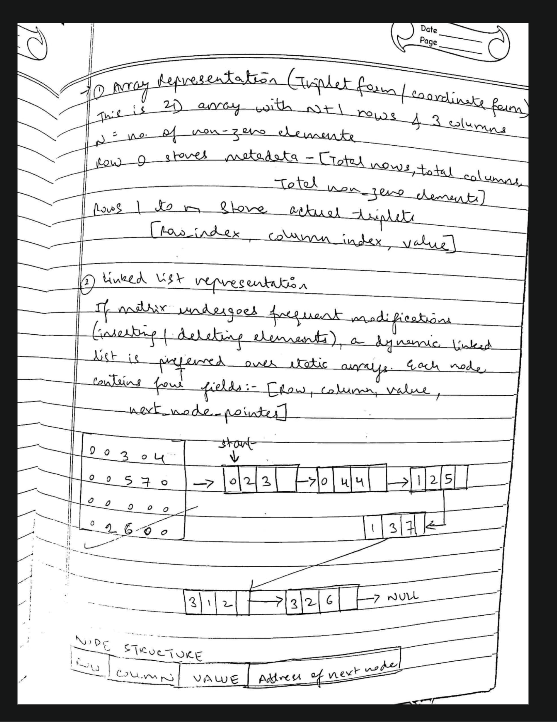 Date
Page
① Array Representation (Triplet form / coordinate form)
This is 2D array with N+1 rows & 3 columns
N = no. of non-zero elements
Row 0 stores metadata - [Total rows, total columns,
Total non-zero elements]
Rows 1 to n store actual triplets
[Row_index, column_index, value]
② Linked list representation
If matrix undergoes frequent modifications
(inserting / deleting elements), a dynamic linked
list is preferred over static arrays. Each node
contains four fields:- [Row, column, value,
next_node_pointer]
start
0 0 3 0 4
0 0 5 7 0
0 0 0 0 0
0 2 6 0 0
0 2 3 → 0 4 4 → 1 2 5
1 3 7
3 1 2 → 3 2 6 → NULL
NODE STRUCTURE
ROW COLUMN VALUE Address of next node